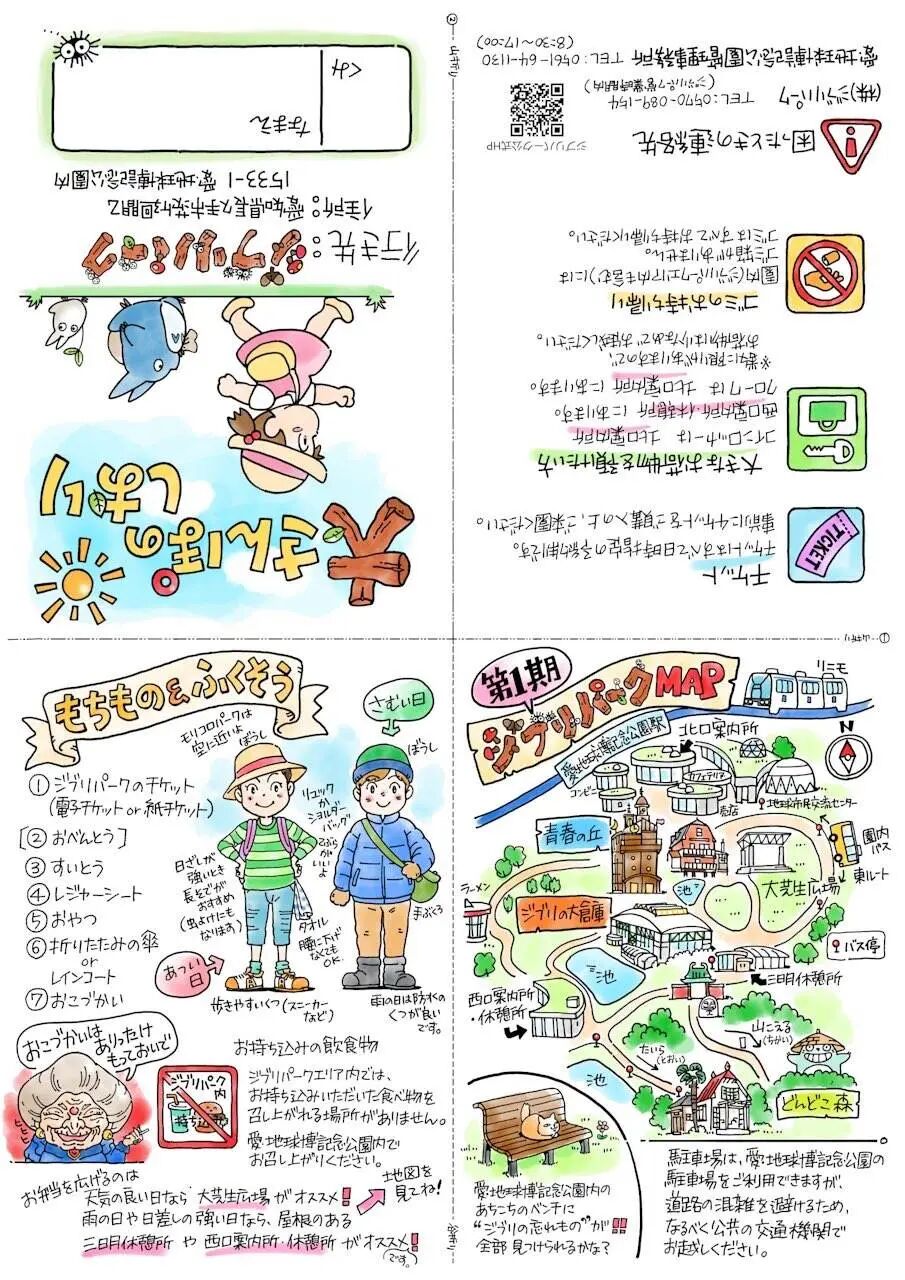 大さんぽのしおり
行き先：ジブリパーク
住所：愛知県長久手市茨ケ廻間乙
1533-1 愛・地球博記念公園内
くみ
なまえ
山おり
②
チケット
チケットはすべて日時指定の予約制です。
事前にチケットをご購入の上、ご来園ください。
TICKET
大きなお荷物を預けたい方
コインロッカーは 北口案内所
西口案内所・休憩所 にあります。
クロークは 北口案内所 にあります。
※数に限りがありますので、
お荷物は少なめでお越しください。
ゴミのお持ち帰り
園内(ジブリパークエリア内も含む)には
ゴミ箱がありません。
ゴミはすべてお持ち帰りください。
困ったときの連絡先
(株)ジブリパーク TEL:0570-089-154
(ジブリパーク営業時間内)
愛・地球博記念公園管理事務所 TEL:0561-64-1130
(8:30〜17:00)
ジブリパーク公式HP
①
もちもの&ふくそう
① ジブリパークのチケット
(電子チケット or 紙チケット)
[② おべんとう]
③ すいとう
④ レジャーシート
⑤ おやつ
⑥ 折りたたみの傘
or
レインコート
⑦ おこづかい
モリコロパークは
空に近いよ
ぼうし
さむい日
ぼうし
リュックか
ショルダー
バッグ
がいいよ
日ざしが
強いとき
長そでが
おすすめ
(虫よけにも
なります)
タオル
腰に下げ
なくても
OK.
手ぶくろ
あつい日
歩きやすいくつ(スニーカー
など)
雨の日は防水の
くつが良い
です。
おこづかいは
ありったけ
もっておいで
ジブリパーク
内
持ち込み
お持ち込みの飲食物
ジブリパークエリア内では、
お持ち込みいただいた食べ物を
召し上がれる場所がありません。
愛・地球博記念公園内で
お召し上がりください。
お弁当を広げるのは
天気の良い日なら 大芝生広場 がオススメ!
地図を
見てね!
雨の日や日差しの強い日なら、屋根のある
三日月休憩所 や 西口案内所・休憩所 がオススメ!
です。
第1期
ジブリパークMAP
リニモ
愛・地球博記念公園駅
北口案内所
コンビニ
カフェテリア
売店
地球市民交流センター
N
園内
バス
東ルート
青春の丘
池
大芝生広場
ラーメン
ジブリの大倉庫
バス停
池
三日月休憩所
西口案内所
・休憩所
山こえる
(ちかい)
たいら
(とおい)
池
どんどこ森
愛・地球博記念公園内の
あちこちのベンチに
"ジブリの忘れもの"が!!
全部見つけられるかな?
駐車場は、愛・地球博記念公園の
駐車場をご利用できますが、
道路の混雑を避けるため、
なるべく公共の交通機関で
お越しください。